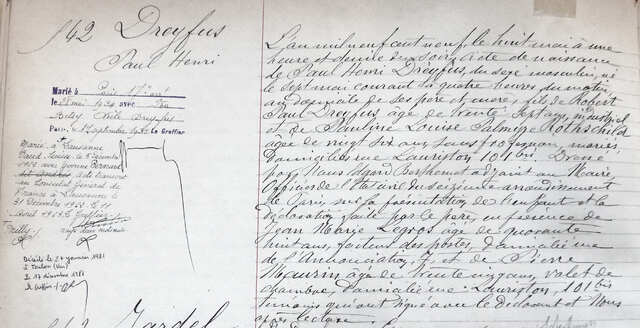 142 Dreyfus
Paul Henri
Marié à Paris 17e arrt
le mai 1934 avec
Nelly Dreyfus
Paris, le septembre Le Greffier
Marié à Lausanne
Vaud, Suisse, le décembre
avec Yvonne
acte transcrit
au Consulat Général de
France à Lausanne le
31 Décembre
Avril
Décédé le 24 janvier 1981
à Toulon (Var)
Le 17 décembre 1981
Le Greffier
L'an mil neuf cent neuf, le huit mai à une
heure et demie du soir, acte de naissance
de Paul Henri Dreyfus, du sexe masculin, né
le sept mai courant à quatre heures du matin,
au domicile de ses père et mère, fils de Robert
Paul Dreyfus âgé de trente sept ans,
et de Pauline Louise Palmyre Rothschild
âgée de vingt six ans, sans profession, mariés,
domiciliés rue Lauriston 101 bis. Dressé
par Nous Edgard adjoint au Maire,
Officier de l'État civil du seizième arrondissement
de Paris, sur la présentation de l'enfant et la
déclaration faite par le père, en présence de
Jean Marie Legros âgé de quarante
huit ans, facteur des postes, domicilié rue
de l'Annonciation, 7, et de Pierre
Meurin âgé de trente cinq ans, valet de
chambre, domicilié rue Lauriston, 101 bis
témoins qui ont signé avec le déclarant et Nous
après lecture.
Jardel